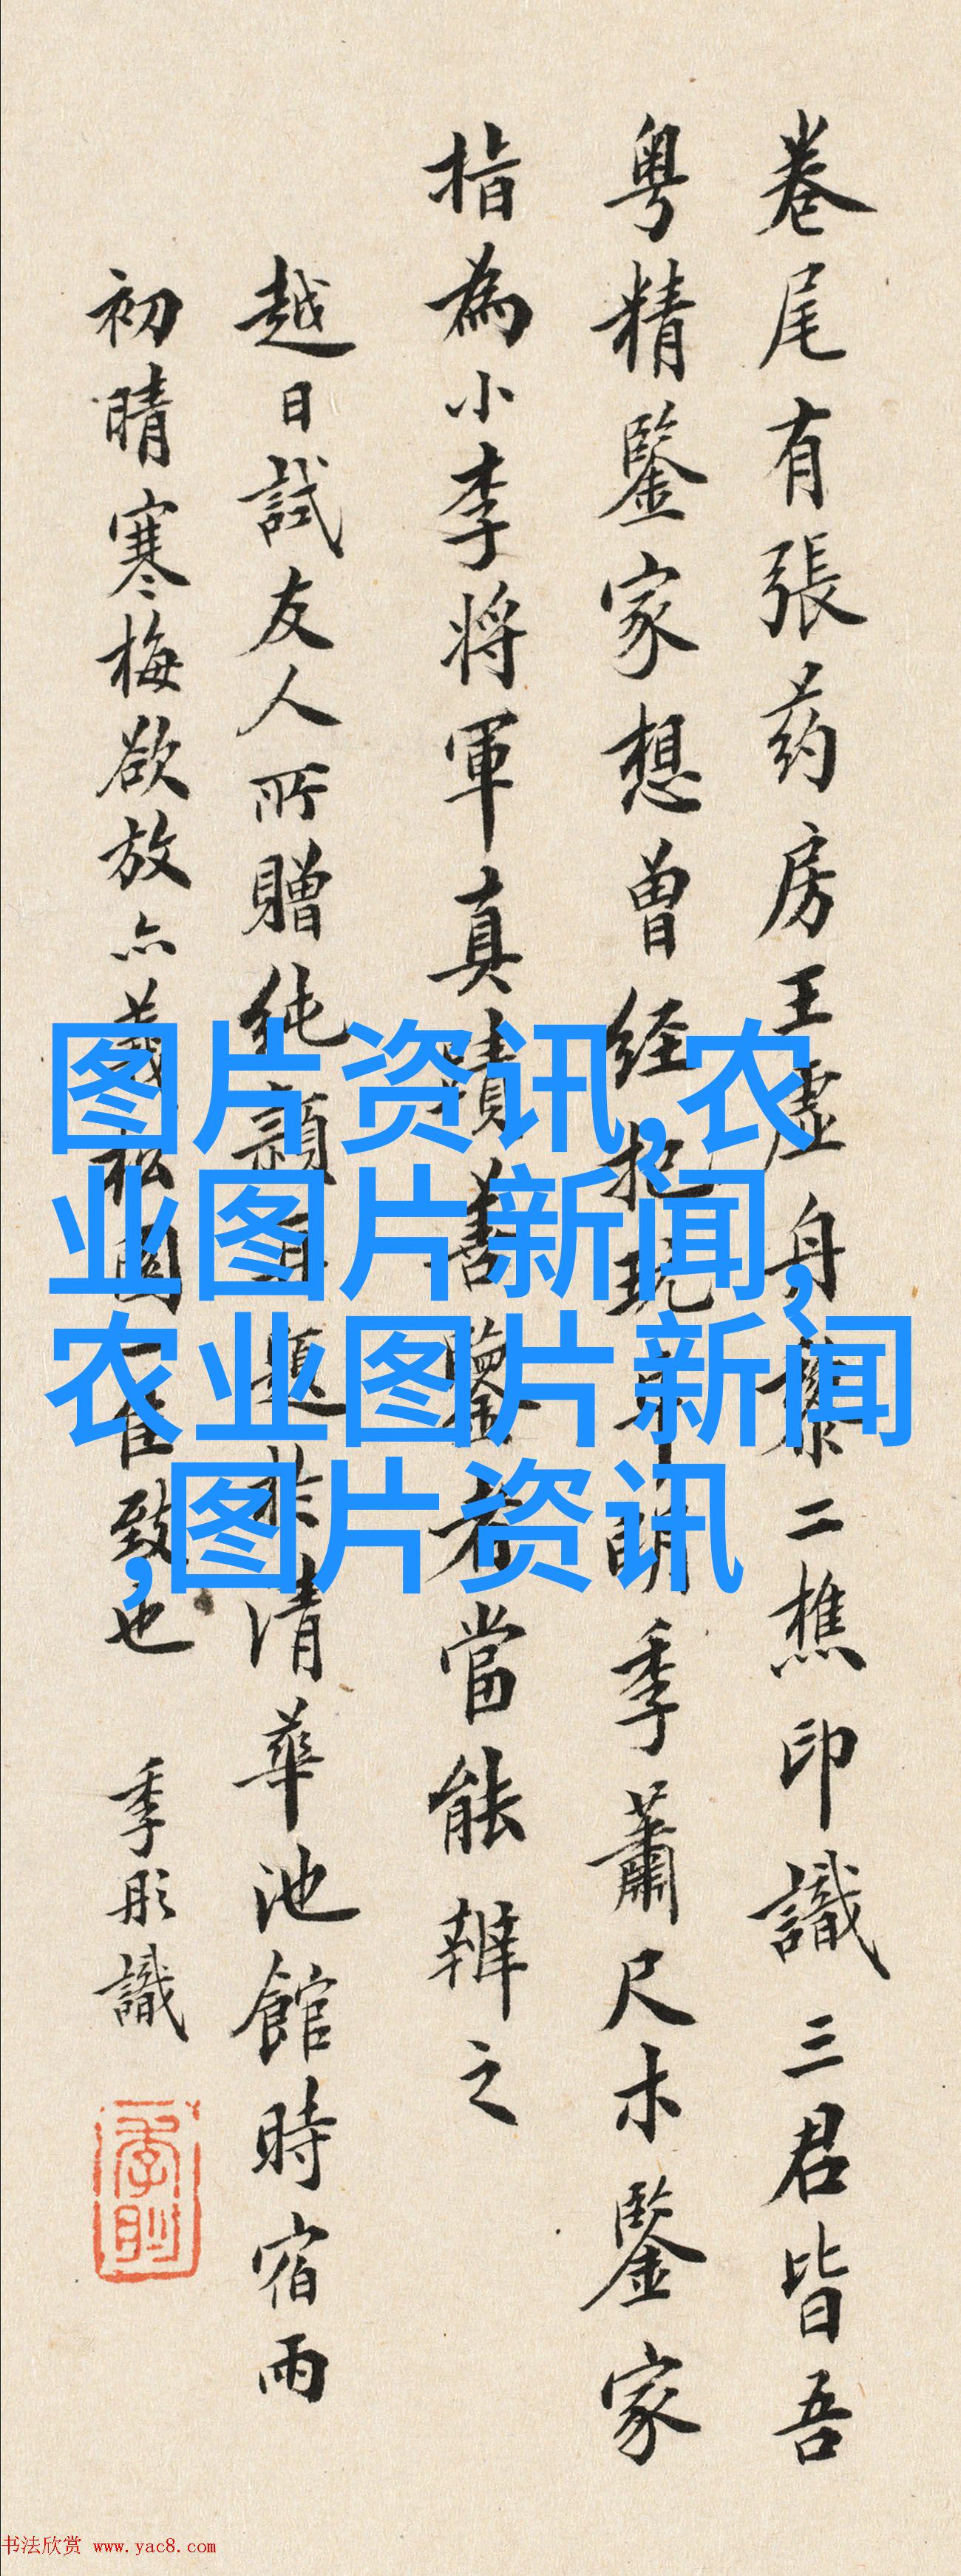 卷尾有張药房王虚舟黎二樵印識三君皆吾
粤精鑒家想曾经把玩明季蕭尺木鑒家
指為小李将軍真蹟善鑒者當能辨之
越日試友人所贈純穎再題於清華池館時宿雨
初晴寒梅欲放亦園佳致也 季彤識
图片资讯,农
业图片新闻,
农业图片新闻
,图片资讯
书法欣赏 www.yac8.com